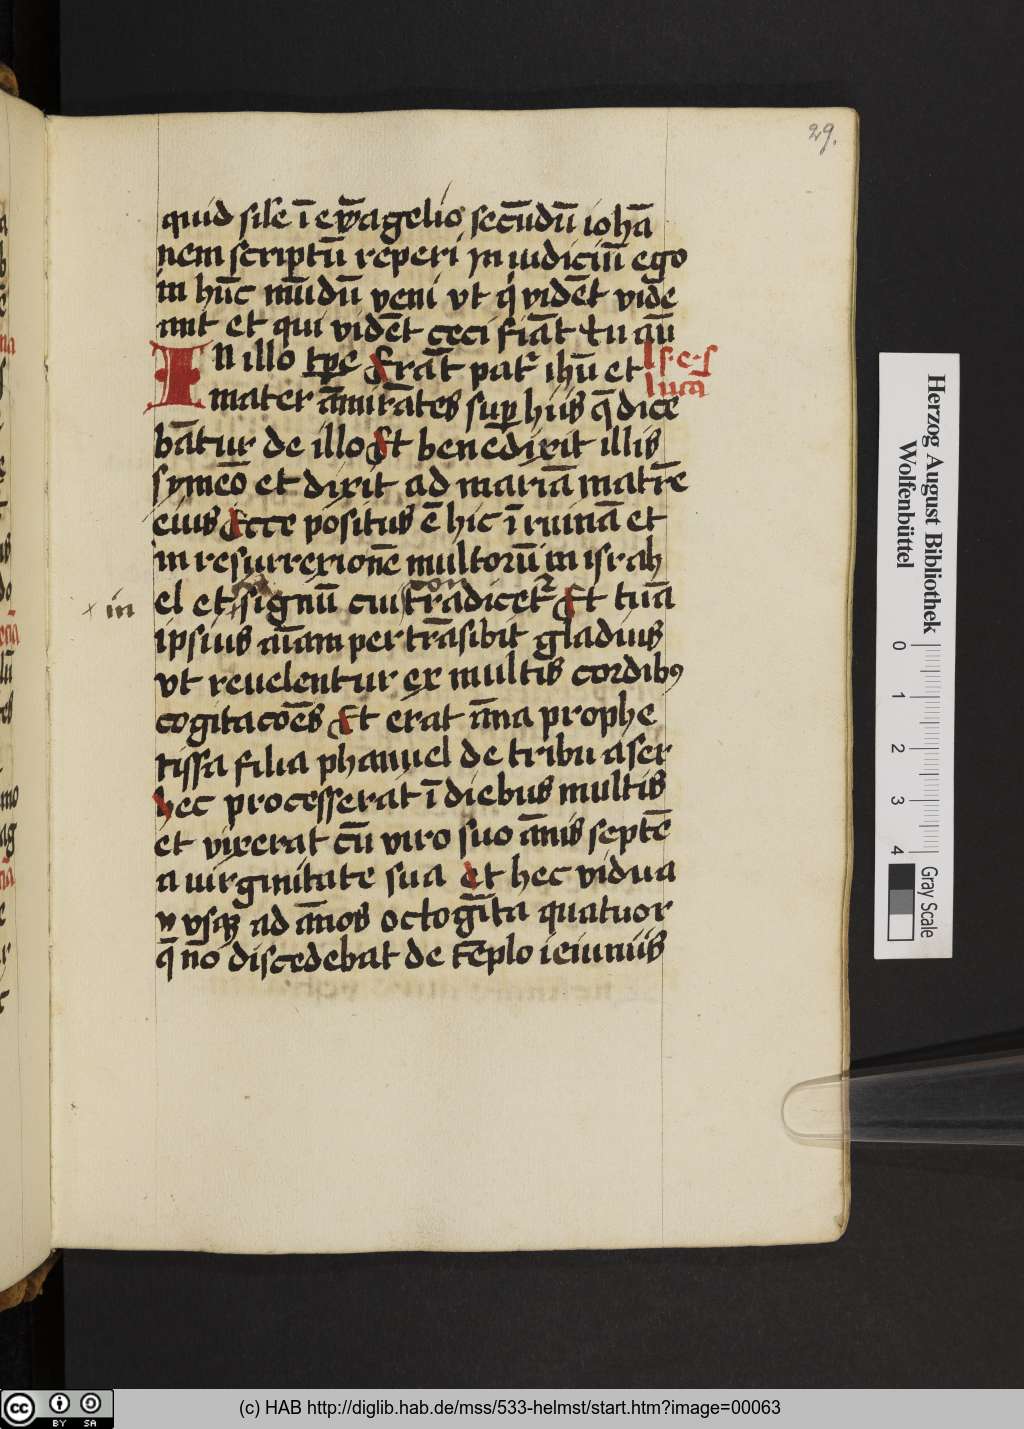 29.
quid sil̄e ī ew̄agelio secūdū iohā
nem scriptū reperi In iudiciū ego
in hūc mūdū veni vt qͥ vidēt vide
ant et qui vidēt ceci fiāt tu aū
IN illo tp̄e Erāt patͬ ihū et
l s e s
lucā
mater āmirātes sup hiis q̄ dice
bātur de illo Et benedixit illis
symeō et dixit ad mariā matrē
eius Ecce positus ē hic ī ruinā et
in resurrexionē multorū in israh
el et signū cui tradicetͬ Et tuā
con
× in
ipsius aīam pertrāsibit gladius
vt reuelentur ex multis cordibꝰ
cogitacōes Et erat āna prophe
tissa filia phanuel de tribu aser
hec processerat ī diebus multis
et vixerat cū viro suo ānis septē
a uirginitate sua et hec vidua
vsqꝫ ad ānos octogīta quatuor
q̄ nō discedebat de tēplo ieiuniis
Herzog August Bibliothek
Wolfenbüttel
0 1 2 3 4
Gray Scale
cc BY SA
(c) HAB http://diglib.hab.de/mss/533-helmst/start.htm?image=00063